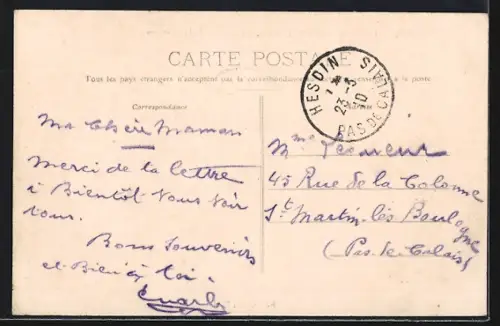 CARTE POSTALE
Tous les pays étrangers n'acceptent pas la correspondance au à la poste
Correspondance
HESDIN
PAS DE CALAIS
23 - 3
10
Ma Chère Maman
Merci de la lettre
à Bientôt Vous Voir
tous.
Bons Souvenirs
et Bien à toi.
Charles
Mme
45 Rue de la Colonne
St Martin-lès Boulogne
(Pas-de-Calais)